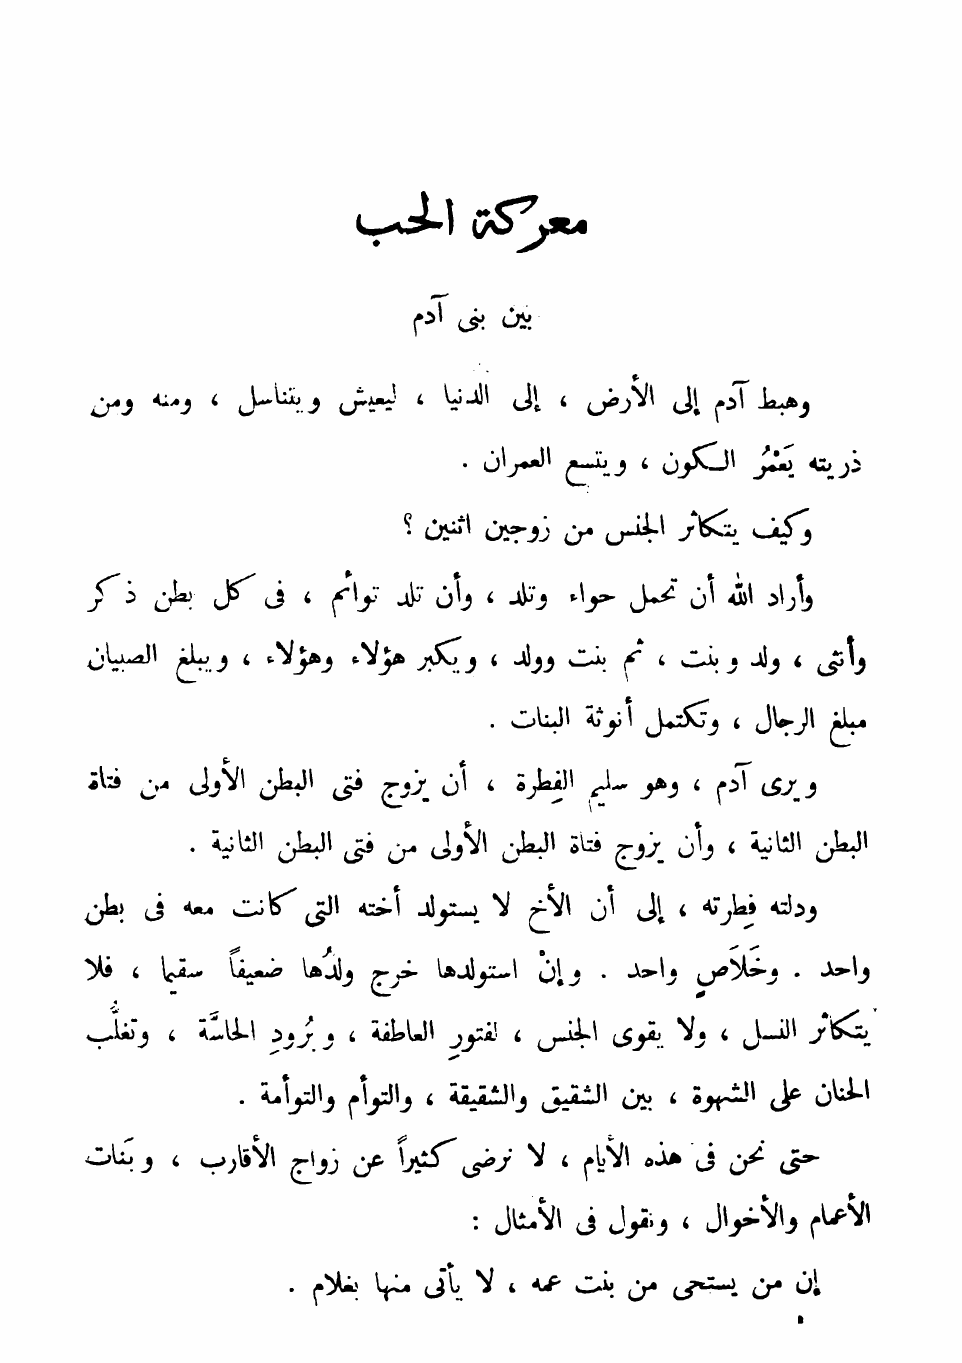 معركة الحب
بين بنى آدم
وهبط آدم إلى الأرض ، إلى الدنيا ، ليعيش ويتناسل ، ومنه ومن
ذريته يَعْمُرُ الكون ، ويتسع العمران .
وكيف يتكاثر الجنس من زوجين اثنين ؟
وأراد الله أن تحمل حواء وتلد ، وأن تلد توائم ، فى كل بطن ذكر
وأنثى ، ولد وبنت ، ثم بنت وولد ، ويكبر هؤلاء وهؤلاء ، ويبلغ الصبيان
مبلغ الرجال ، وتكتمل أنوثة البنات .
ويرى آدم ، وهو سليم الفِطرة ، أن يزوج فتى البطن الأولى من فتاة
البطن الثانية ، وأن يزوج فتاة البطن الأولى من فتى البطن الثانية .
ودلته فِطرته ، إلى أن الأخ لا يستولد أخته التى كانت معه فى بطن
واحد . وخَلاَصٍ واحد . وإنْ استولدها خرج ولدُها ضعيفاً سقيما ، فلا
يتكاثر النسل ، ولا يقوى الجنس ، لفتورِ العاطفة ، وبُرودِ الحاسَّة ، وتغلُّب
الحنان على الشهوة ، بين الشقيق والشقيقة ، والتوأم والتوأمة .
حتى نحن فى هذه الأيام ، لا نرضى كثيراً عن زواج الأقارب ، وبَنات
الأعمام والأخوال ، ونقول فى الأمثال :
إن من يستحى من بنت عمه ، لا يأتى منها بغلام .